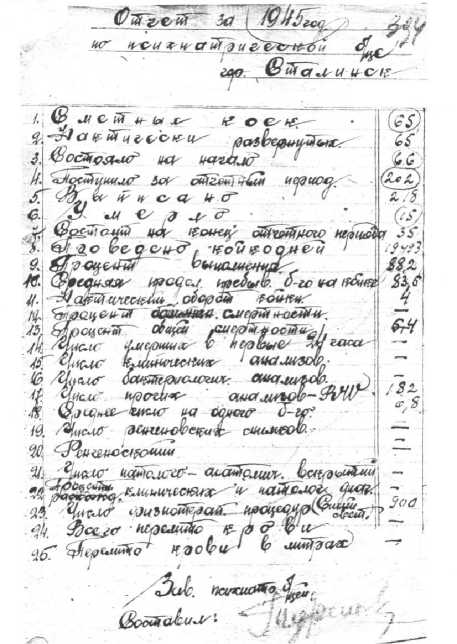 Отчет за 1945 год 394
по психиатрической б/це
гор. Сталинск
1. Сметных коек 65
2. Фактически развернутых. 65
3. Состояло на начало 66
4. Поступило за отчетный период. 202
5. Выписано 218
6. Умерло 15
7. Состоит на конец отчетного периода 35
8. Проведено койкодней
9. Процент выполнения 88,2
10. Средняя продол. пребыв. б-го на койке 83,6
11. Фактический оборот койки 4
12. Процент смертности. —
13. Процент общей смертности 6,4
14. Число умерших в первые 24 часа —
15. Число клинических анализов. —
16. Число бактериологич. анализов. —
17. Число прочих анализов - RW 182
18. Среднее число на одного б-го. 0,8
19. Число рентгеновских снимков. —
20. Рентгеноскопий —
21. Число патолого-анатомич. вскрытий —
22. клинических и патолог. диаг. —
23. Число физиотерап. процедур 900
24. Всего перелито крови —
25. Перелито крови в литрах —
Зав. психиатр. б/цей:
Составил: